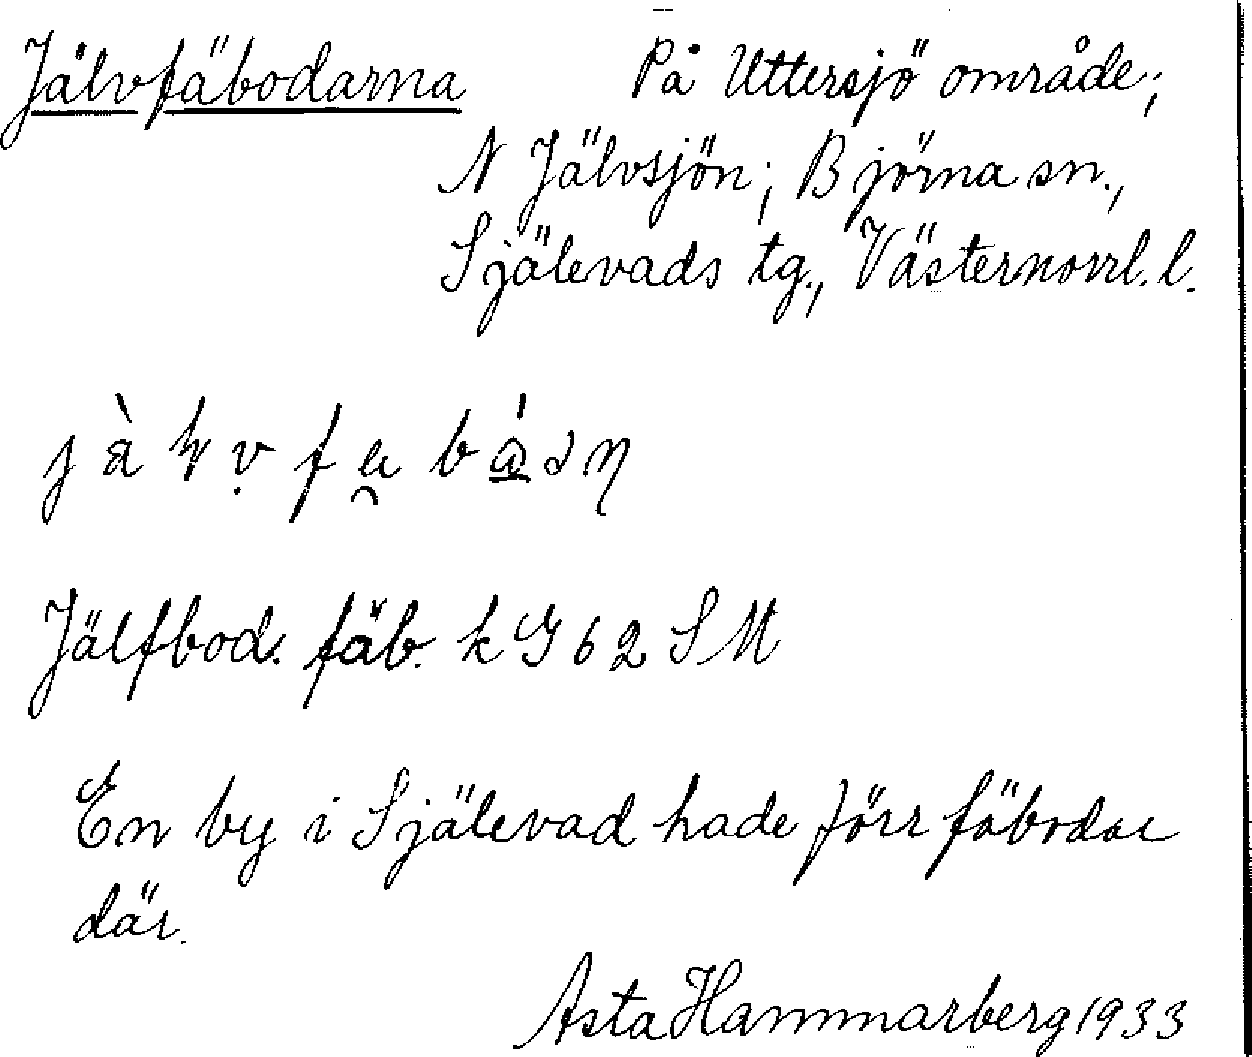 Jälvfäbodarna På Uttersjö område;
N Jälvsjön; Björna sn.,
Själevads tg., Västernorrl. l.
Jälfbod. fäb. k G 62 SM
En by i Själevad hade förr fäbodar
där.
Asta Hammarberg 1933